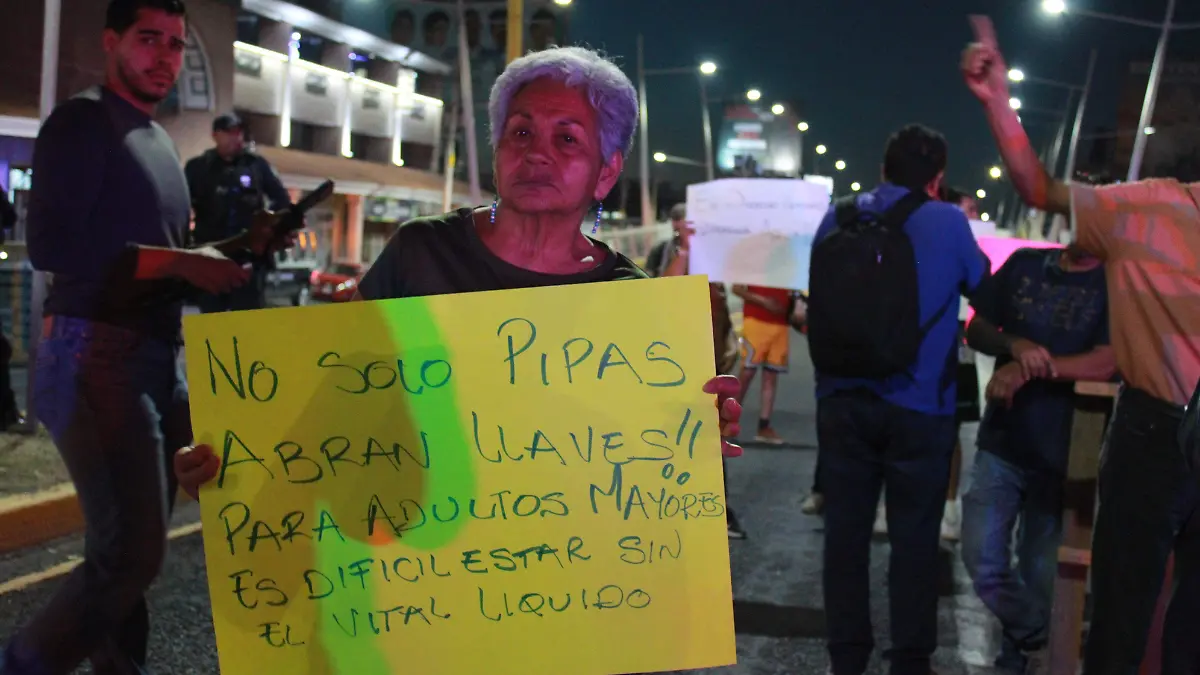 No SOLO PIPAS
ABRAN LLAVES!!
PARA ADULTOS MAYORES
ES DIFICIL ESTAR SIN
EL VITAL LIQUIDO